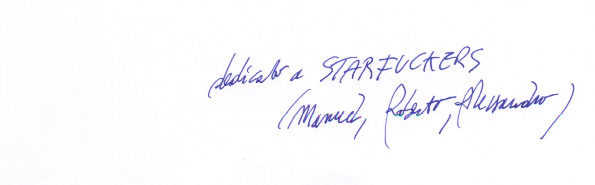 dedicato a STARFUCKERS
(Manuel, Roberto, Alessandro)